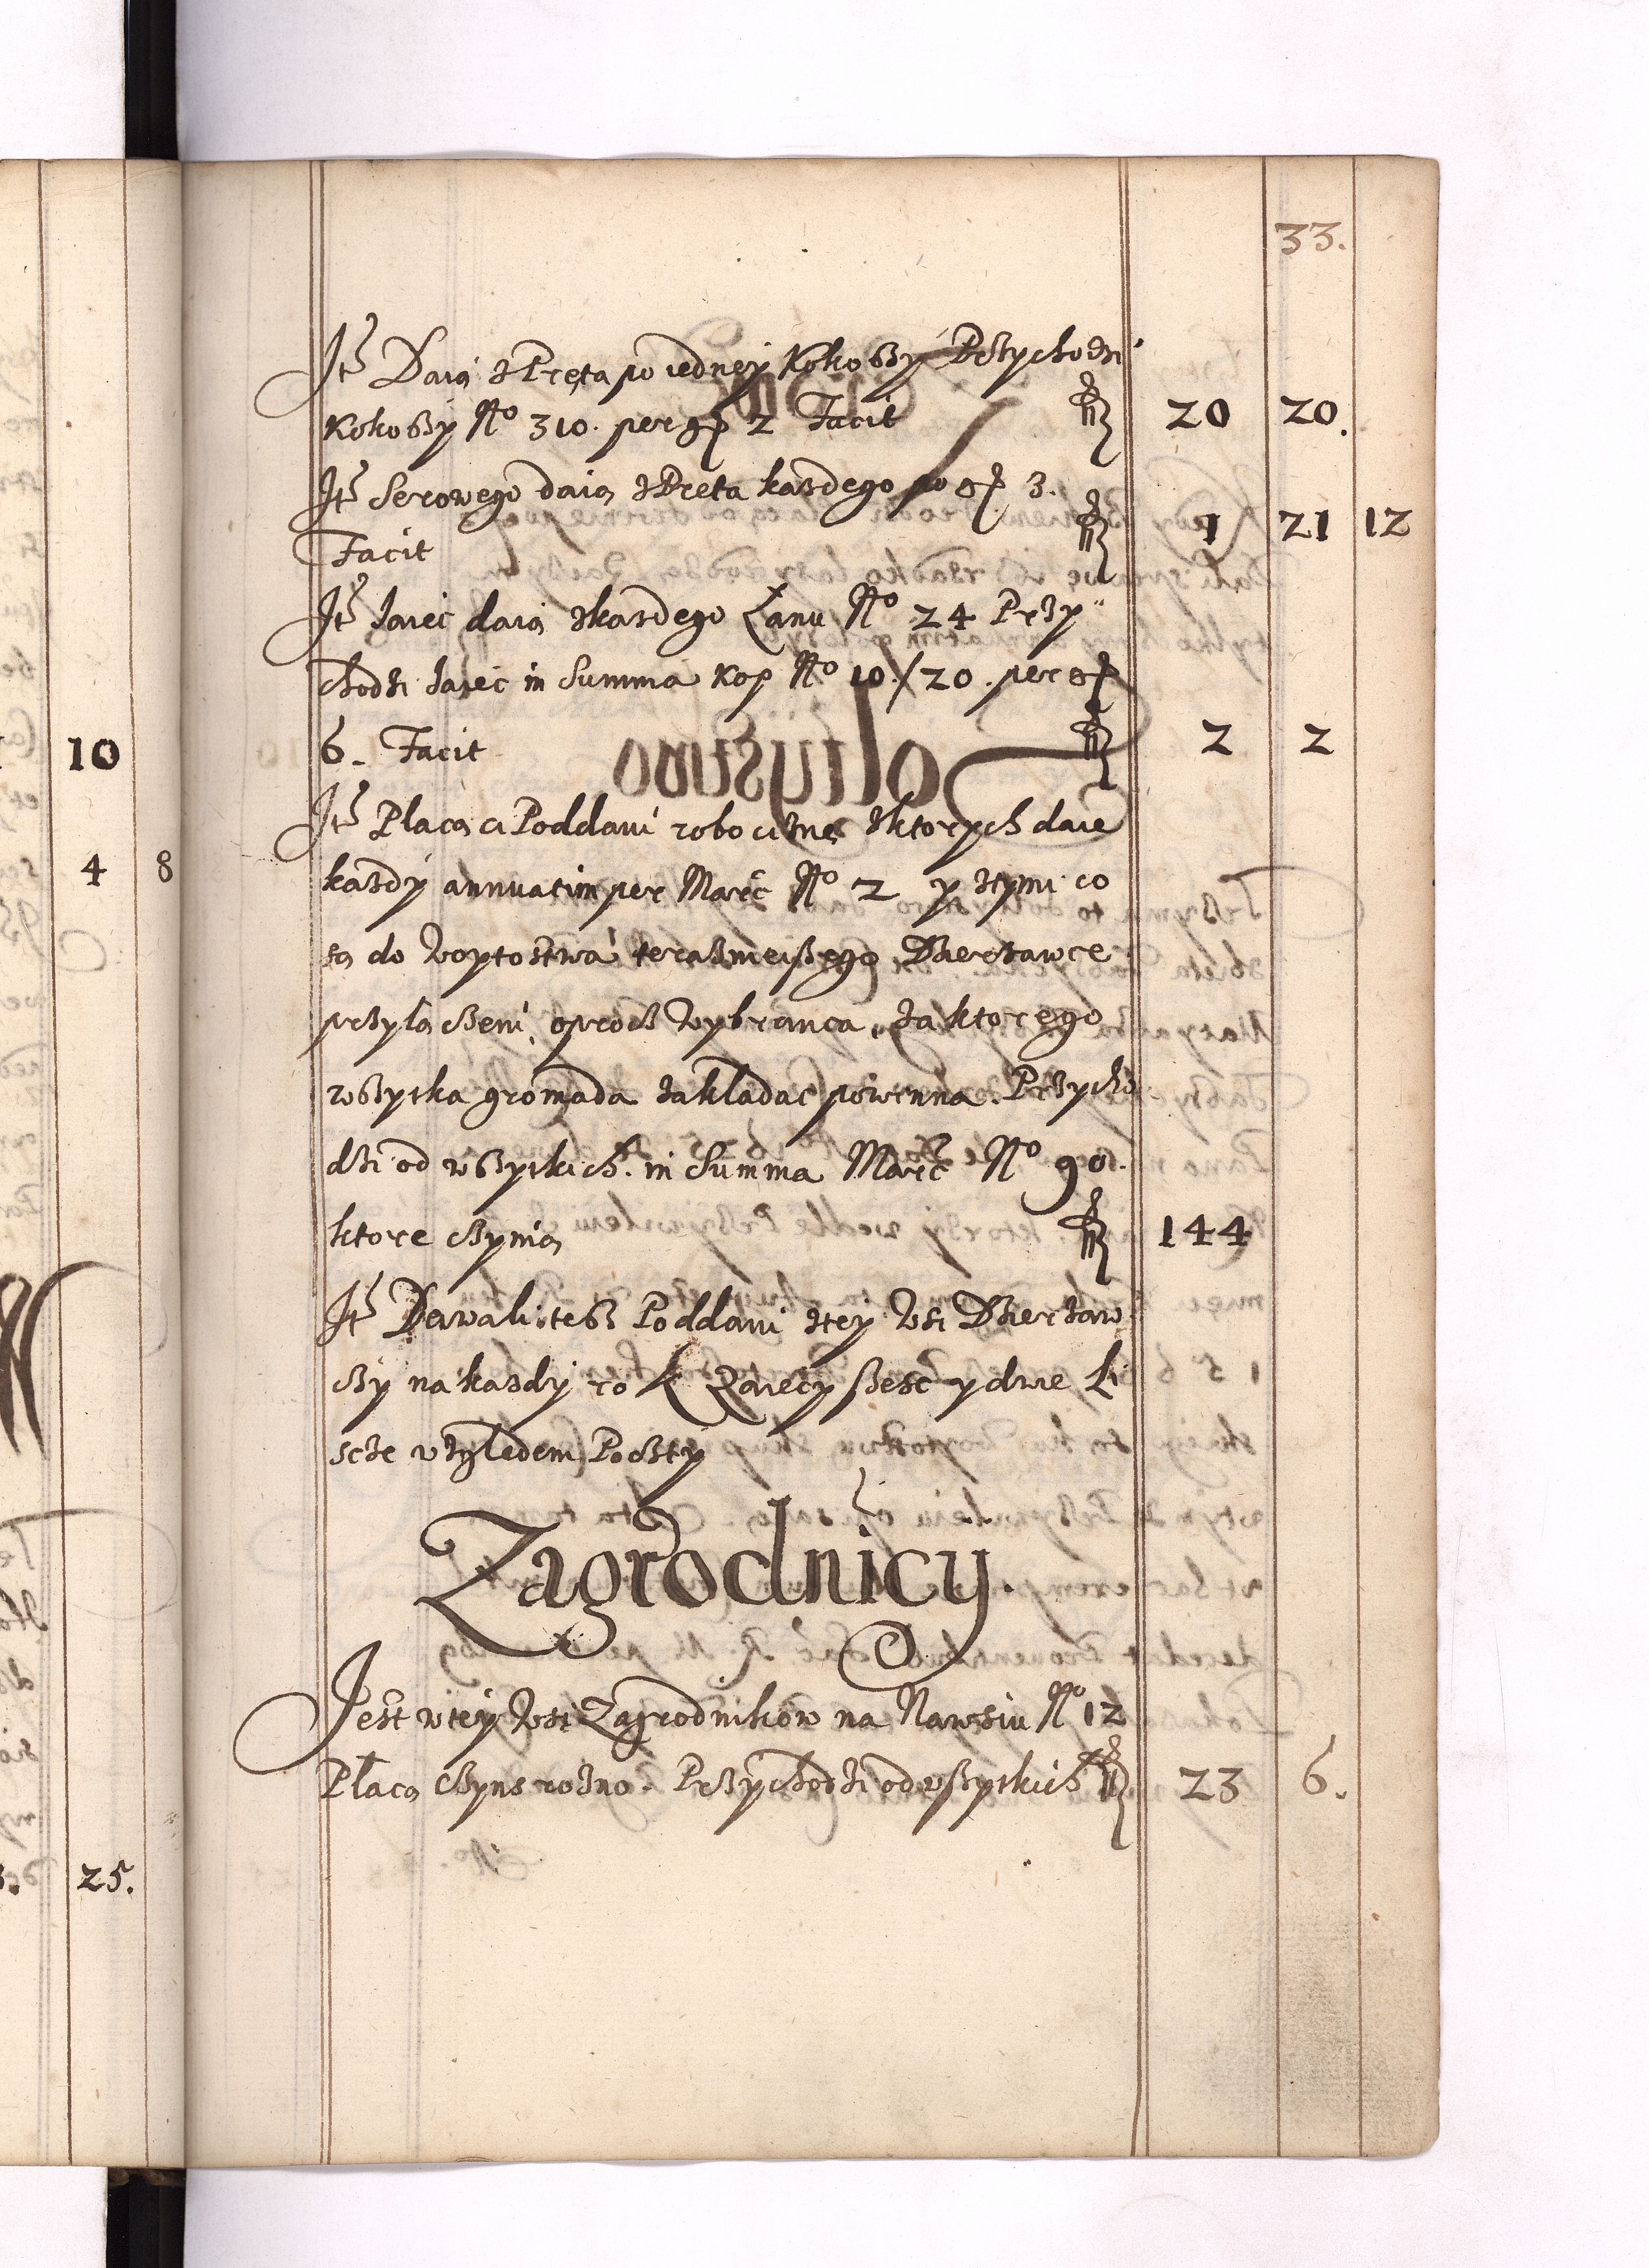 33.
It~ Daią z Pręta po iedney Kokoszy Przychodzi
Kokoszy No 310. per gr 2 Facit fl 20 20.
It~ Serowego daią z Pręta kazdego po gr 3.
Facit fl 1 21 12
It~ Jaiec daią z kazdego Łanu No 24 Przy
chodzi Jaiec in Summa Kop No 10/20. per gr
6. Facit fl 2 2
It~ Płacą ci Poddani robociznę z ktorych daie
kazdy annuatim per Marc No 2 y z tymi co
są do Woytostwa terazneiszego Dzierzawce
przyłączeni oprocz Wybranca, za ktorego
wszytka gromada zakładac powinna. Przycho
dzi od wszytkich. in Summa Marc No 90.
ktore czynią fl 144
It~ Dawali tesz Poddani z tey Wsi Dzierzaw
czy na kazdy rok Zaięcy szesc y dwie Li
scze względem Poczty
Zagrodnicy.
Jest w tey Wsi Zagrodnikow na Nawsiu No 12
Płacą Czyns rozno. Przychodzi od wszytkich fl 23 6.
10
4 8
25.